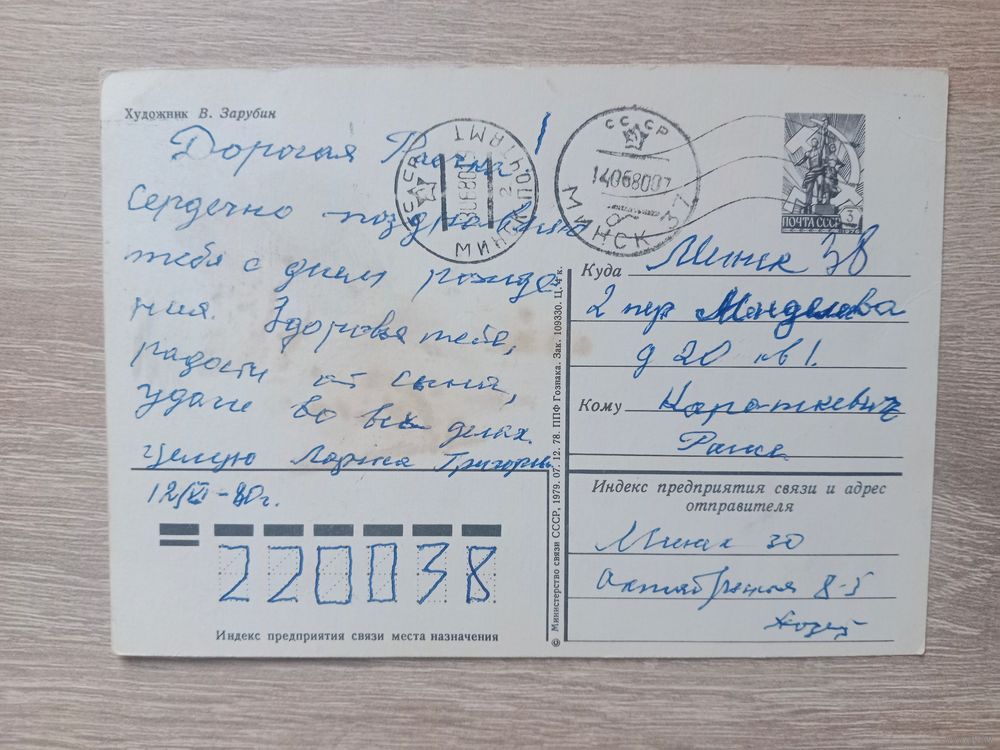 Художник В. Зарубин
Дорогая
Сердечно поздравляю
тебя с днем рожде
ния. Здоровья тебе,
радости от сына,
удачи во всех делах.
Целую Лариса Григорьев
12/VI-80г.
220038
Индекс предприятия связи места назначения
СССР
МИНСК ПОЧТАМТ
2
СССР
14068007
МИНСК 37
ПОЧТА СССР
3
Куда Минск 38
2 пер
д 20 кв 1.
Кому Кароткевич
Раисе
Индекс предприятия связи и адрес
отправителя
Минск 30
Октябрьская 8-5
© Министерство связи СССР, 1979. 07. 12. 78. ППФ Гознака. Зак. 109330. Ц. 4 к.